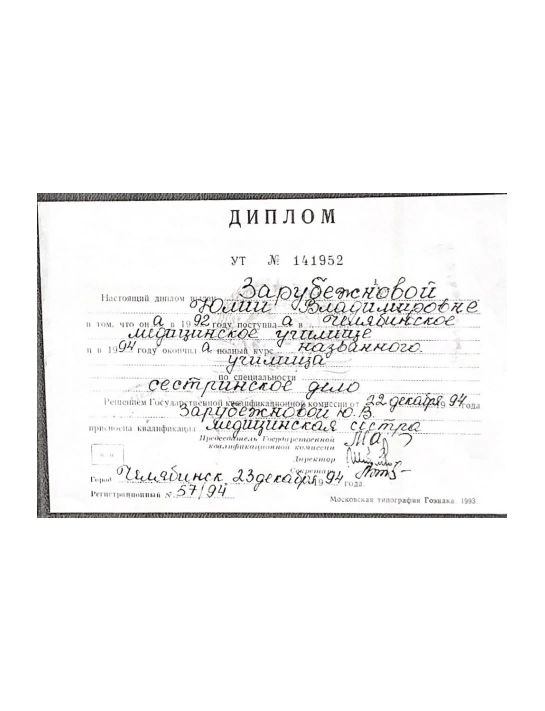 ДИПЛОМ
УТ № 141952
Настоящий диплом выдан Зарубежновой
Юлии Владимировне
в том, что он а в 1992 году поступил а в Челябинское
медицинское училище
и в 1994 году окончил а полный курс названного
училища
по специальности
сестринское дело
Решением Государственной квалификационной комиссии от 22 декабря 1994 года
Зарубежновой Ю.В.
присвоена квалификация медицинская сестра
Председатель Государственной
квалификационной комиссии
Директор
Секретарь
Город Челябинск, 23 декабря 1994 года.
Регистрационный № 57/94
Московская типография Гознака. 1993.